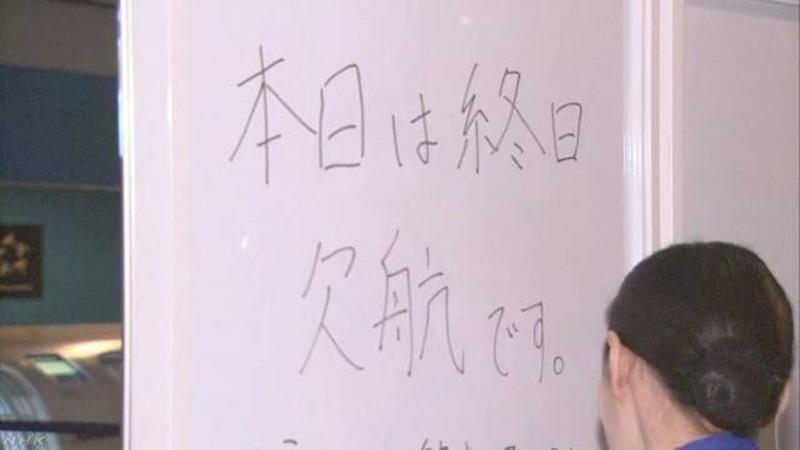 本日は終日
欠航です。
NHK